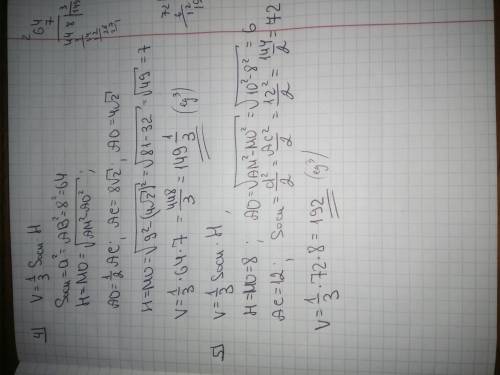 4) V = 1/3 Sосн · H
Sосн = a² = AB² = 8² = 64
H = MO = √(AM² - AO²);
AO = 1/2 AC; AC = 8√2; AO = 4√2
H = MO = √(9² - (4√2)²) = √(81 - 32) = √49 = 7
V = 1/3 · 64 · 7 = 448/3 = 149 1/3 (ед³)
5) V = 1/3 Sосн · H;
H = MO = 8; AO = √(AM² - MO²) = √(10² - 8²) = 6
AC = 12; Sосн = d²/2 = AC²/2 = 12²/2 = 144/2 = 72
V = 1/3 · 72 · 8 = 192 (ед³)
64
7
448 3